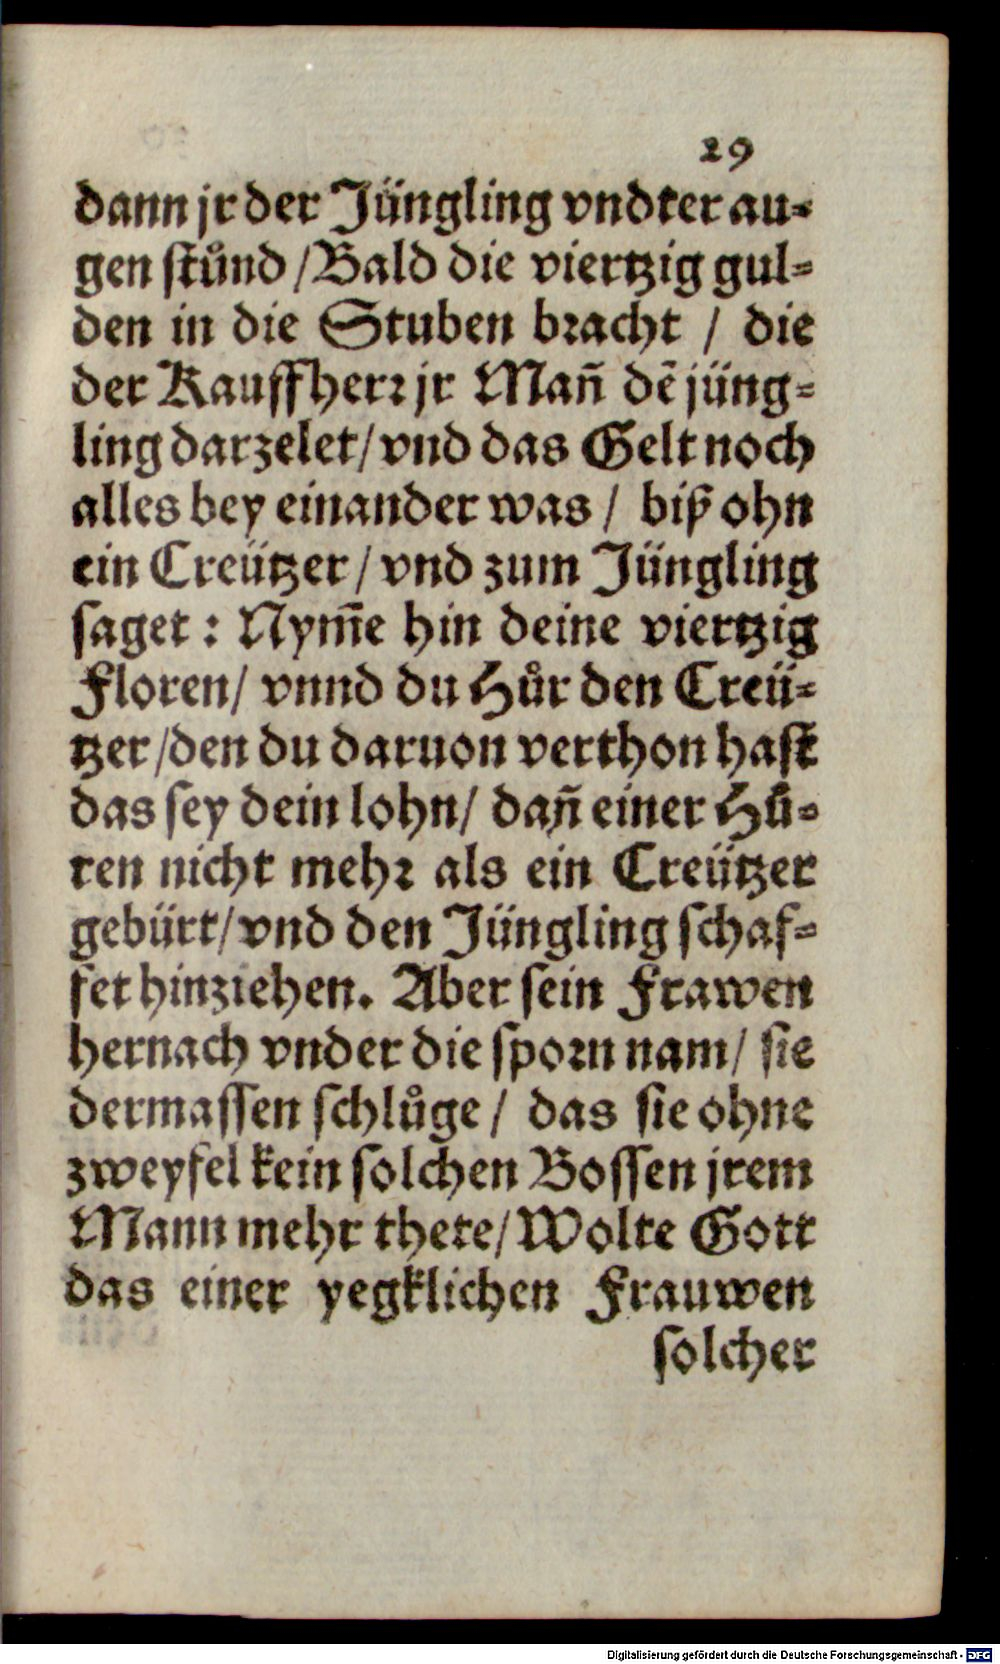 29
dann jr der Jüngling vndter au=
gen stůnd / Bald die viertzig gul=
den in die Stuben bracht / die
der Kauffherr jr Mañ dē jüng=
ling darzelet / vnd das Gelt noch
alles bey einander was / biß ohn
ein Creützer / vnd zum Jüngling
saget : Nym̃e hin deine viertzig
Floren / vnnd du Hůr den Creü=
tzer / den du daruon verthon hast
das sey dein lohn / dañ einer Hů=
ren nicht mehr als ein Creützer
gebürt / vnd den Jüngling schaf=
fet hinziehen. Aber sein Frawen
hernach vnder die sporn nam / sie
dermassen schlůge / das sie ohne
zweyfel kein solchen Bossen jrem
Mann mehr thete / Wolte Gott
das einer yegklichen Frauwen
solcher
Digitalisierung gefördert durch die Deutsche Forschungsgemeinschaft - DFG